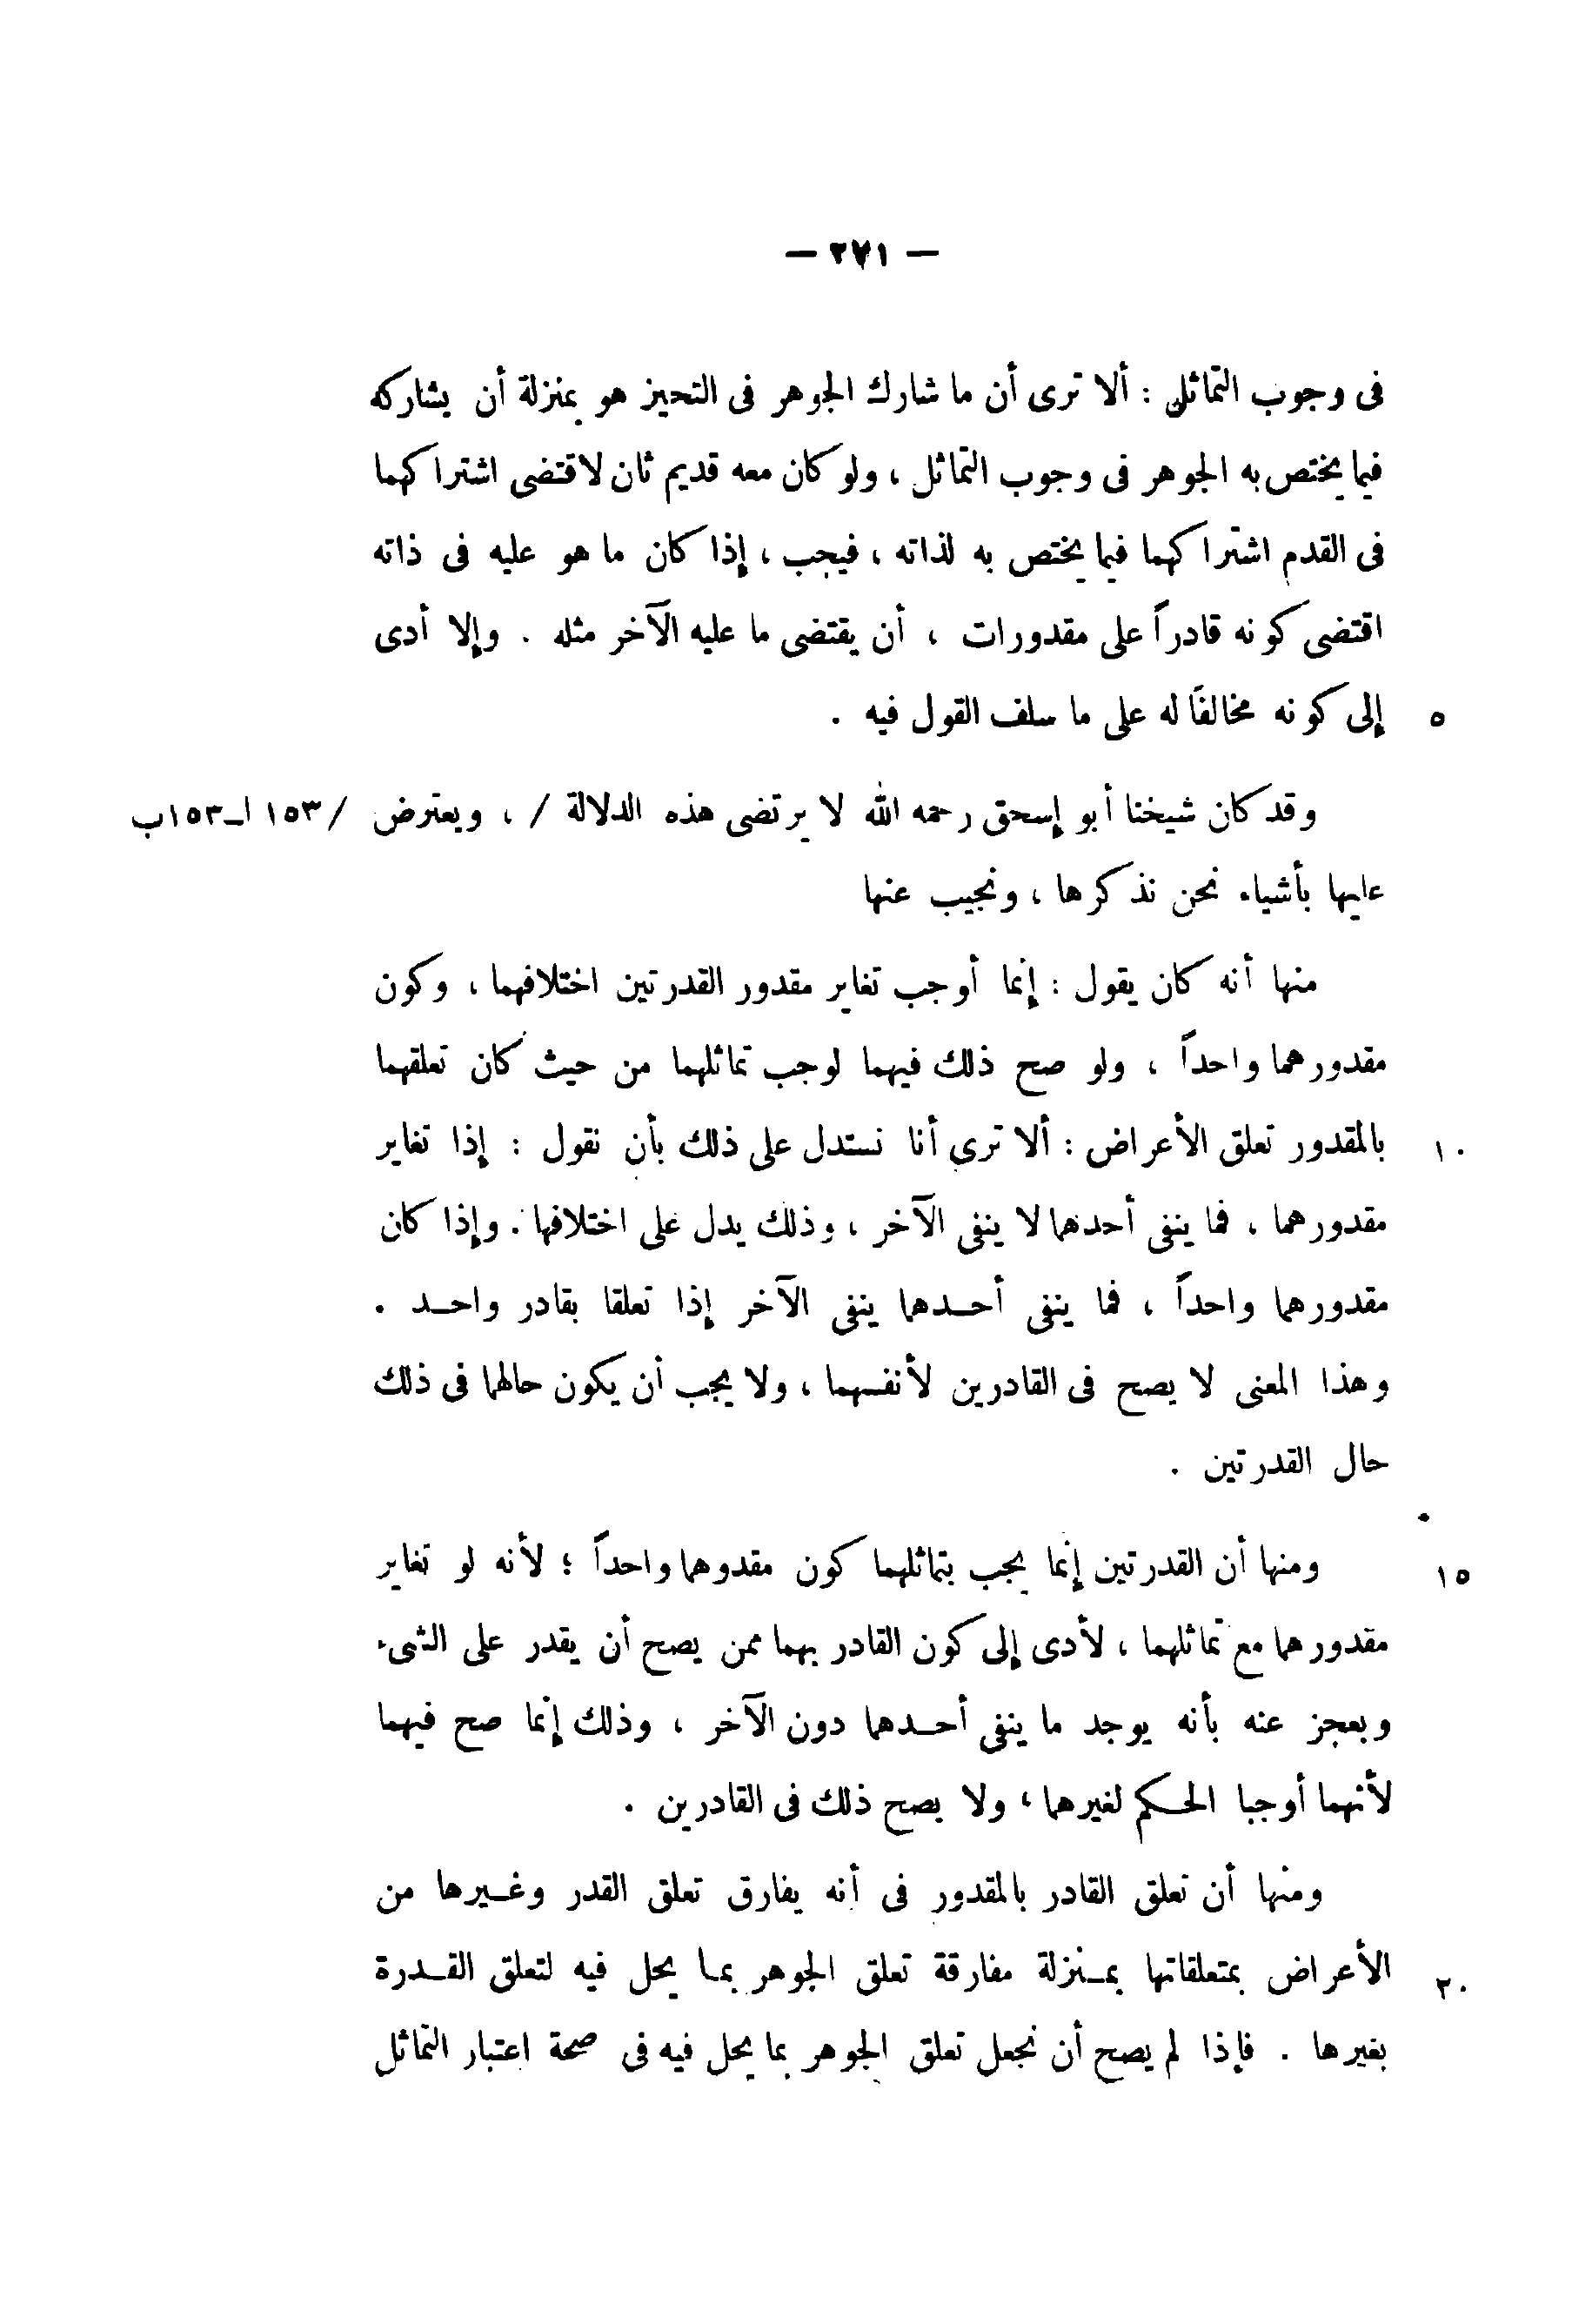 — ٢٧١ —
فى وجوب التماثل : ألا ترى أن ما شارك الجوهر فى التحيز هو بمنزلة أن يشاركه
فيما يختص به الجوهر فى وجوب التماثل ، ولو كان معه قديم ثان لاقتضى اشتراكهما
فى القدم اشتراكهما فيما يختص به لذاته ، فيجب ، إذا كان ما هو عليه فى ذاته
اقتضى كونه قادراً على مقدورات ، أن يقتضى ما عليه الآخر مثله . وإلا أدى
٥ إلى كونه مخالفًا له على ما سلف القول فيه .
وقد كان شيخنا أبو إسحق رحمه الله لا يرتضى هذه الدلالة / ، ويعترض / ١٥٣ ا_١٥٣ب
عليها بأشياء نحن نذكرها ، ونجيب عنها
منها أنه كان يقول : إنما أوجب تغاير مقدور القدرتين اختلافهما ، وكون
مقدورهما واحداً ، ولو صح ذلك فيهما لوجب تماثلهما من حيث كان تعلقهما
١٠ بالمقدور تعلق الأعراض : ألا ترى أنا نستدل على ذلك بأن نقول : إذا تغاير
مقدورهما ، فما ينفى أحدهما لا ينفى الآخر ، وذلك يدل على اختلافها . وإذا كان
مقدورهما واحداً ، فما ينفى أحدهما ينفى الآخر إذا تعلقا بقادر واحد .
وهذا المعنى لا يصح فى القادرين لأنفسهما ، ولا يجب أن يكون حالهما فى ذلك
حال القدرتين .
١٥ ومنها أن القدرتين إنما يجب بتماثلهما كون مقدوهما واحداً ؛ لأنه لو تغاير
مقدورهما مع تماثلهما ، لأدى إلى كون القادر بهما ممن يصح أن يقدر على الشىء
ويعجز عنه بأنه يوجد ما ينفى أحدهما دون الآخر ، وذلك إنما صح فيهما
لأنهما أوجبا الحكم لغيرهما ، ولا يصح ذلك فى القادرين .
ومنها أن تعلق القادر بالمقدور فى أنه يفارق تعلق القدر وغيرها من
٢٠ الأعراض بمتعلقاتها بمنزلة مفارقة تعلق الجوهر بما يحل فيه لتعلق القدرة
بغيرها . فإذا لم يصح أن نجعل تعلق الجوهر بما يحل فيه فى صحة اعتبار التماثل